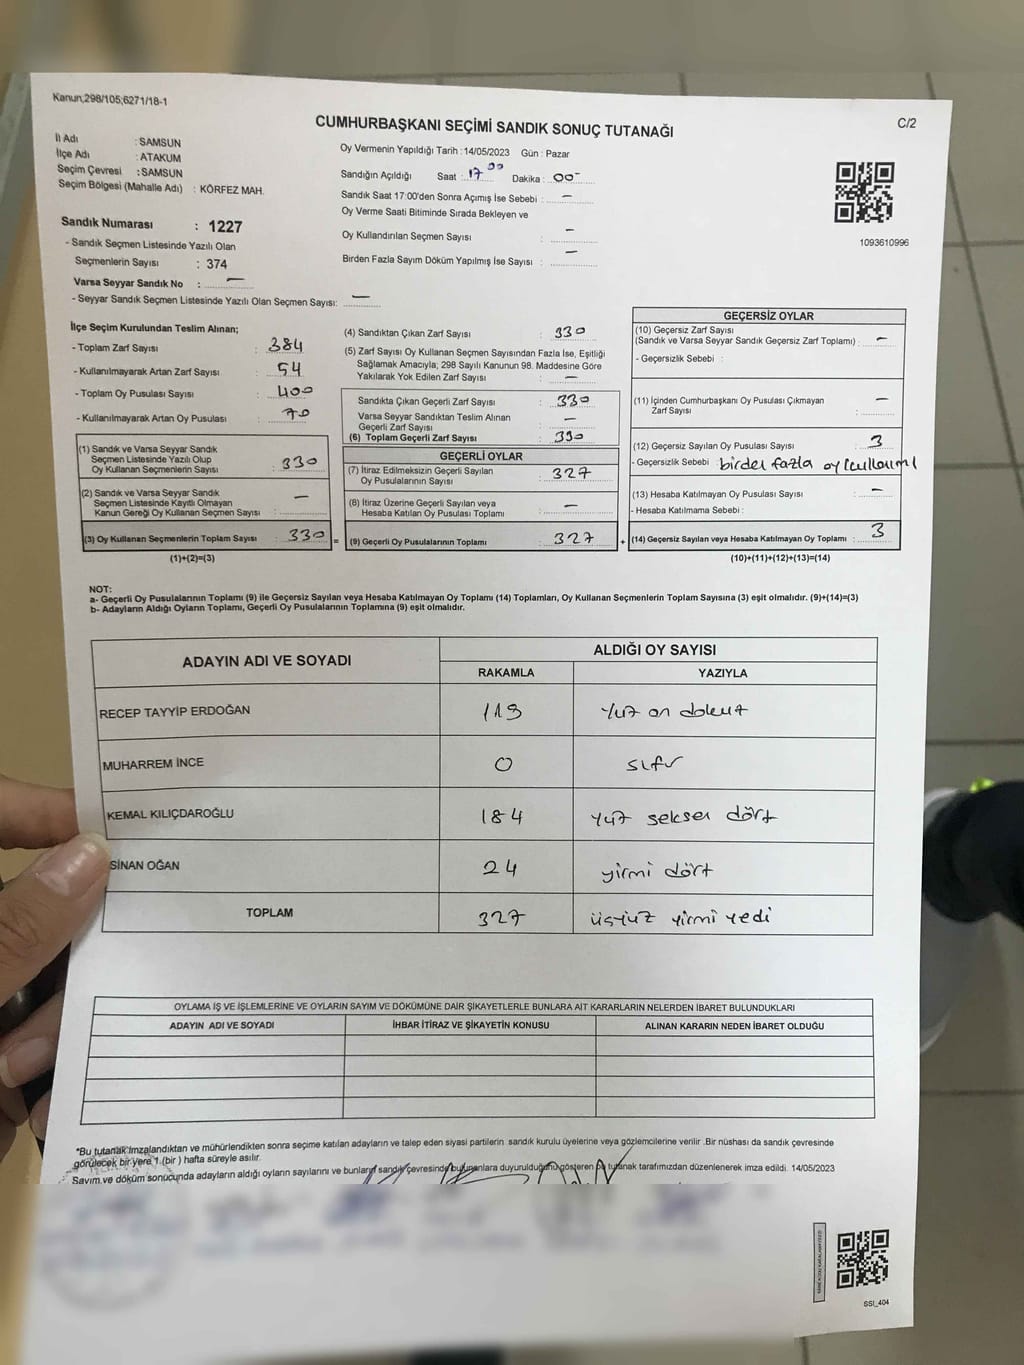 Kanun;298/105;6271/18-1
C/2
CUMHURBAŞKANI SEÇİMİ SANDIK SONUÇ TUTANAĞI
İl Adı : SAMSUN
İlçe Adı : ATAKUM
Seçim Çevresi : SAMSUN
Seçim Bölgesi (Mahalle Adı) : KÖRFEZ MAH.
Oy Vermenin Yapıldığı Tarih : 14/05/2023 Gün : Pazar
Sandığın Açıldığı Saat : 17 00 Dakika : 00
Sandık Saat 17:00'den Sonra Açımış İse Sebebi : —
Oy Verme Saati Bitiminde Sırada Bekleyen ve
Oy Kullandırılan Seçmen Sayısı : —
Birden Fazla Sayım Döküm Yapılmış İse Sayısı : —
1093610996
Sandık Numarası : 1227
- Sandık Seçmen Listesinde Yazılı Olan
Seçmenlerin Sayısı : 374
Varsa Seyyar Sandık No : —
- Seyyar Sandık Seçmen Listesinde Yazılı Olan Seçmen Sayısı: —
İlçe Seçim Kurulundan Teslim Alınan;
- Toplam Zarf Sayısı : 384
- Kullanılmayarak Artan Zarf Sayısı : 54
- Toplam Oy Pusulası Sayısı : 400
- Kullanılmayarak Artan Oy Pusulası : 70
(1) Sandık ve Varsa Seyyar Sandık
Seçmen Listesinde Yazılı Olup
Oy Kullanan Seçmenlerin Sayısı : 330
(2) Sandık ve Varsa Seyyar Sandık
Seçmen Listesinde Kayıtlı Olmayan
Kanun Gereği Oy Kullanan Seçmen Sayısı : —
(3) Oy Kullanan Seçmenlerin Toplam Sayısı : 330
(1)+(2)=(3)
(4) Sandıktan Çıkan Zarf Sayısı : 330
(5) Zarf Sayısı Oy Kullanan Seçmen Sayısından Fazla İse, Eşitliği
Sağlamak Amacıyla; 298 Sayılı Kanunun 98. Maddesine Göre
Yakılarak Yok Edilen Zarf Sayısı : —
Sandıkta Çıkan Geçerli Zarf Sayısı : 330
Varsa Seyyar Sandıktan Teslim Alınan
Geçerli Zarf Sayısı : —
(6) Toplam Geçerli Zarf Sayısı : 330
GEÇERLİ OYLAR
(7) İtiraz Edilmeksizin Geçerli Sayılan
Oy Pusulalarının Sayısı : 327
(8) İtiraz Üzerine Geçerli Sayılan veya
Hesaba Katılan Oy Pusulası Toplamı : —
= (9) Geçerli Oy Pusulalarının Toplamı : 327
GEÇERSİZ OYLAR
(10) Geçersiz Zarf Sayısı
(Sandık ve Varsa Seyyar Sandık Geçersiz Zarf Toplamı) : —
- Geçersizlik Sebebi :
(11) İçinden Cumhurbaşkanı Oy Pusulası Çıkmayan
Zarf Sayısı : —
(12) Geçersiz Sayılan Oy Pusulası Sayısı : 3
- Geçersizlik Sebebi : birden fazla oy kullanımı
(13) Hesaba Katılmayan Oy Pusulası Sayısı : —
- Hesaba Katılmama Sebebi :
+ (14) Geçersiz Sayılan veya Hesaba Katılmayan Oy Toplamı : 3
(10)+(11)+(12)+(13)=(14)
NOT:
a- Geçerli Oy Pusulalarının Toplamı (9) ile Geçersiz Sayılan veya Hesaba Katılmayan Oy Toplamı (14) Toplamları, Oy Kullanan Seçmenlerin Toplam Sayısına (3) eşit olmalıdır. (9)+(14)=(3)
b- Adayların Aldığı Oyların Toplamı, Geçerli Oy Pusulalarının Toplamına (9) eşit olmalıdır.
ADAYIN ADI VE SOYADI
ALDIĞI OY SAYISI
RAKAMLA YAZIYLA
RECEP TAYYİP ERDOĞAN 119 Yüz on dokuz
MUHARREM İNCE 0 sıfır
KEMAL KILIÇDAROĞLU 184 Yüz seksen dört
SİNAN OĞAN 24 yirmi dört
TOPLAM 327 üçyüz yirmi yedi
OYLAMA İŞ VE İŞLEMLERİNE VE OYLARIN SAYIM VE DÖKÜMÜNE DAİR ŞİKAYETLERLE BUNLARA AİT KARARLARIN NELERDEN İBARET BULUNDUKLARI
ADAYIN ADI VE SOYADI İHBAR İTİRAZ VE ŞİKAYETİN KONUSU ALINAN KARARIN NEDEN İBARET OLDUĞU
*Bu tutanak imzalandıktan ve mühürlendikten sonra seçime katılan adayların ve talep eden siyasi partilerin sandık kurulu üyelerine veya gözlemcilerine verilir .Bir nüshası da sandık çevresinde
görülecek bir yere 1 (bir ) hafta süreyle asılır.
Sayım ve döküm sonucunda adayların aldığı oyların sayılarını ve bunların sandık çevresinde bulunanlara duyurulduğunu gösteren bu tutanak tarafımızdan düzenlenerek imza edildi. 14/05/2023
SSI_404